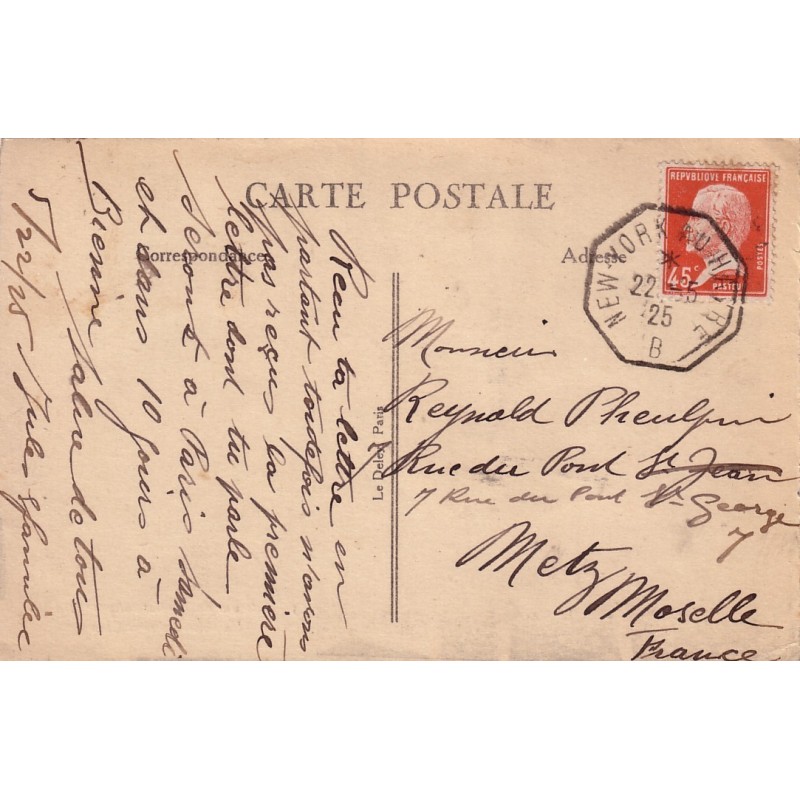 CARTE POSTALE
Correspondance
Adresse
REPVBLIQUE FRANÇAISE
POSTES
45c
PASTEUR
NEW-YORK AU HAVRE
22
25
B
Le Deley, Paris
Reçu ta lettre en
partant toutefois n'avons
pas reçu la première
lettre dont tu parle
serons à Paris samedi
et dans 10 jours à
Bienne Salue de tous
5/22/25 Jules & famille
Monsieur
Reynold Pheulpin
Rue du Pont St Jean
7 Rue du Pont St-George
7
Metz
Moselle
France